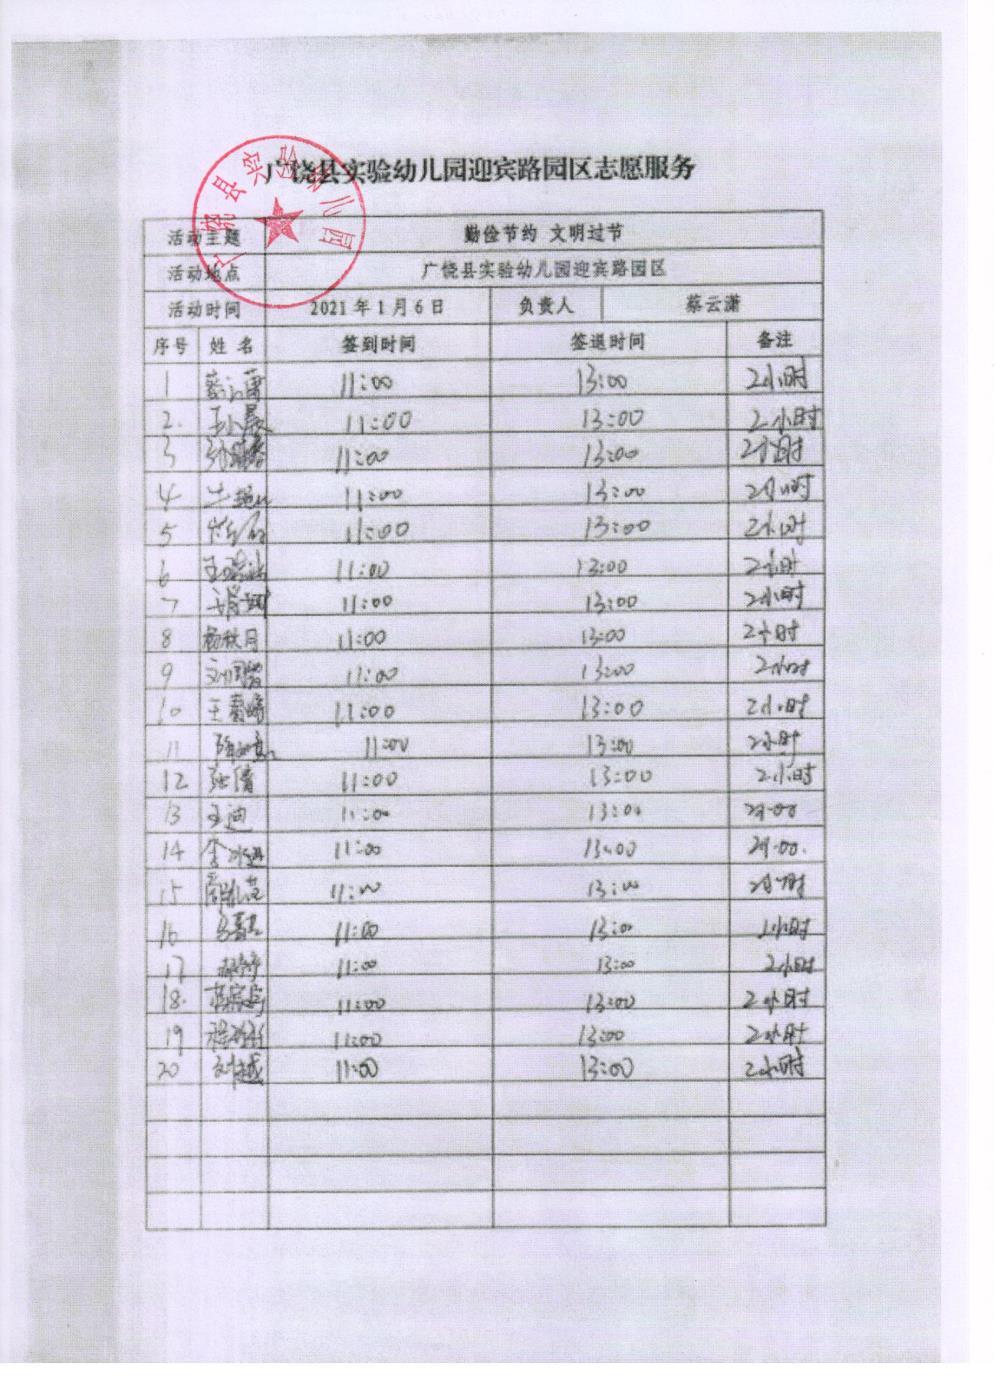 广饶县实验幼儿园
广饶县实验幼儿园迎宾路园区志愿服务
活动主题 勤俭节约 文明过节
活动地点 广饶县实验幼儿园迎宾路园区
活动时间 2021年1月6日 负责人 蔡云潇
序号 姓名 签到时间 签退时间 备注
1 11:00 13:00 2小时
2. 王小晨 11:00 13:00 2小时
3 11:00 13:00 2小时
4 11:00 13:00 2小时
5 11:00 13:00 2小时
6 11:00 13:00 2小时
7 11:00 13:00 2小时
8 杨秋月 11:00 13:00 2小时
9 11:00 13:00 2小时
10 11:00 13:00 2小时
11 11:00 13:00 2小时
12 张倩 11:00 13:00 2小时
13 王迪 11:00 13:00
14 11:00 13:00
15 11:00 13:00 2小时
16 11:00 13:00 小时
17 11:00 13:00 2小时
18. 11:00 13:00 2小时
19 11:00 13:00 2小时
20 刘越 11:00 13:00 2小时